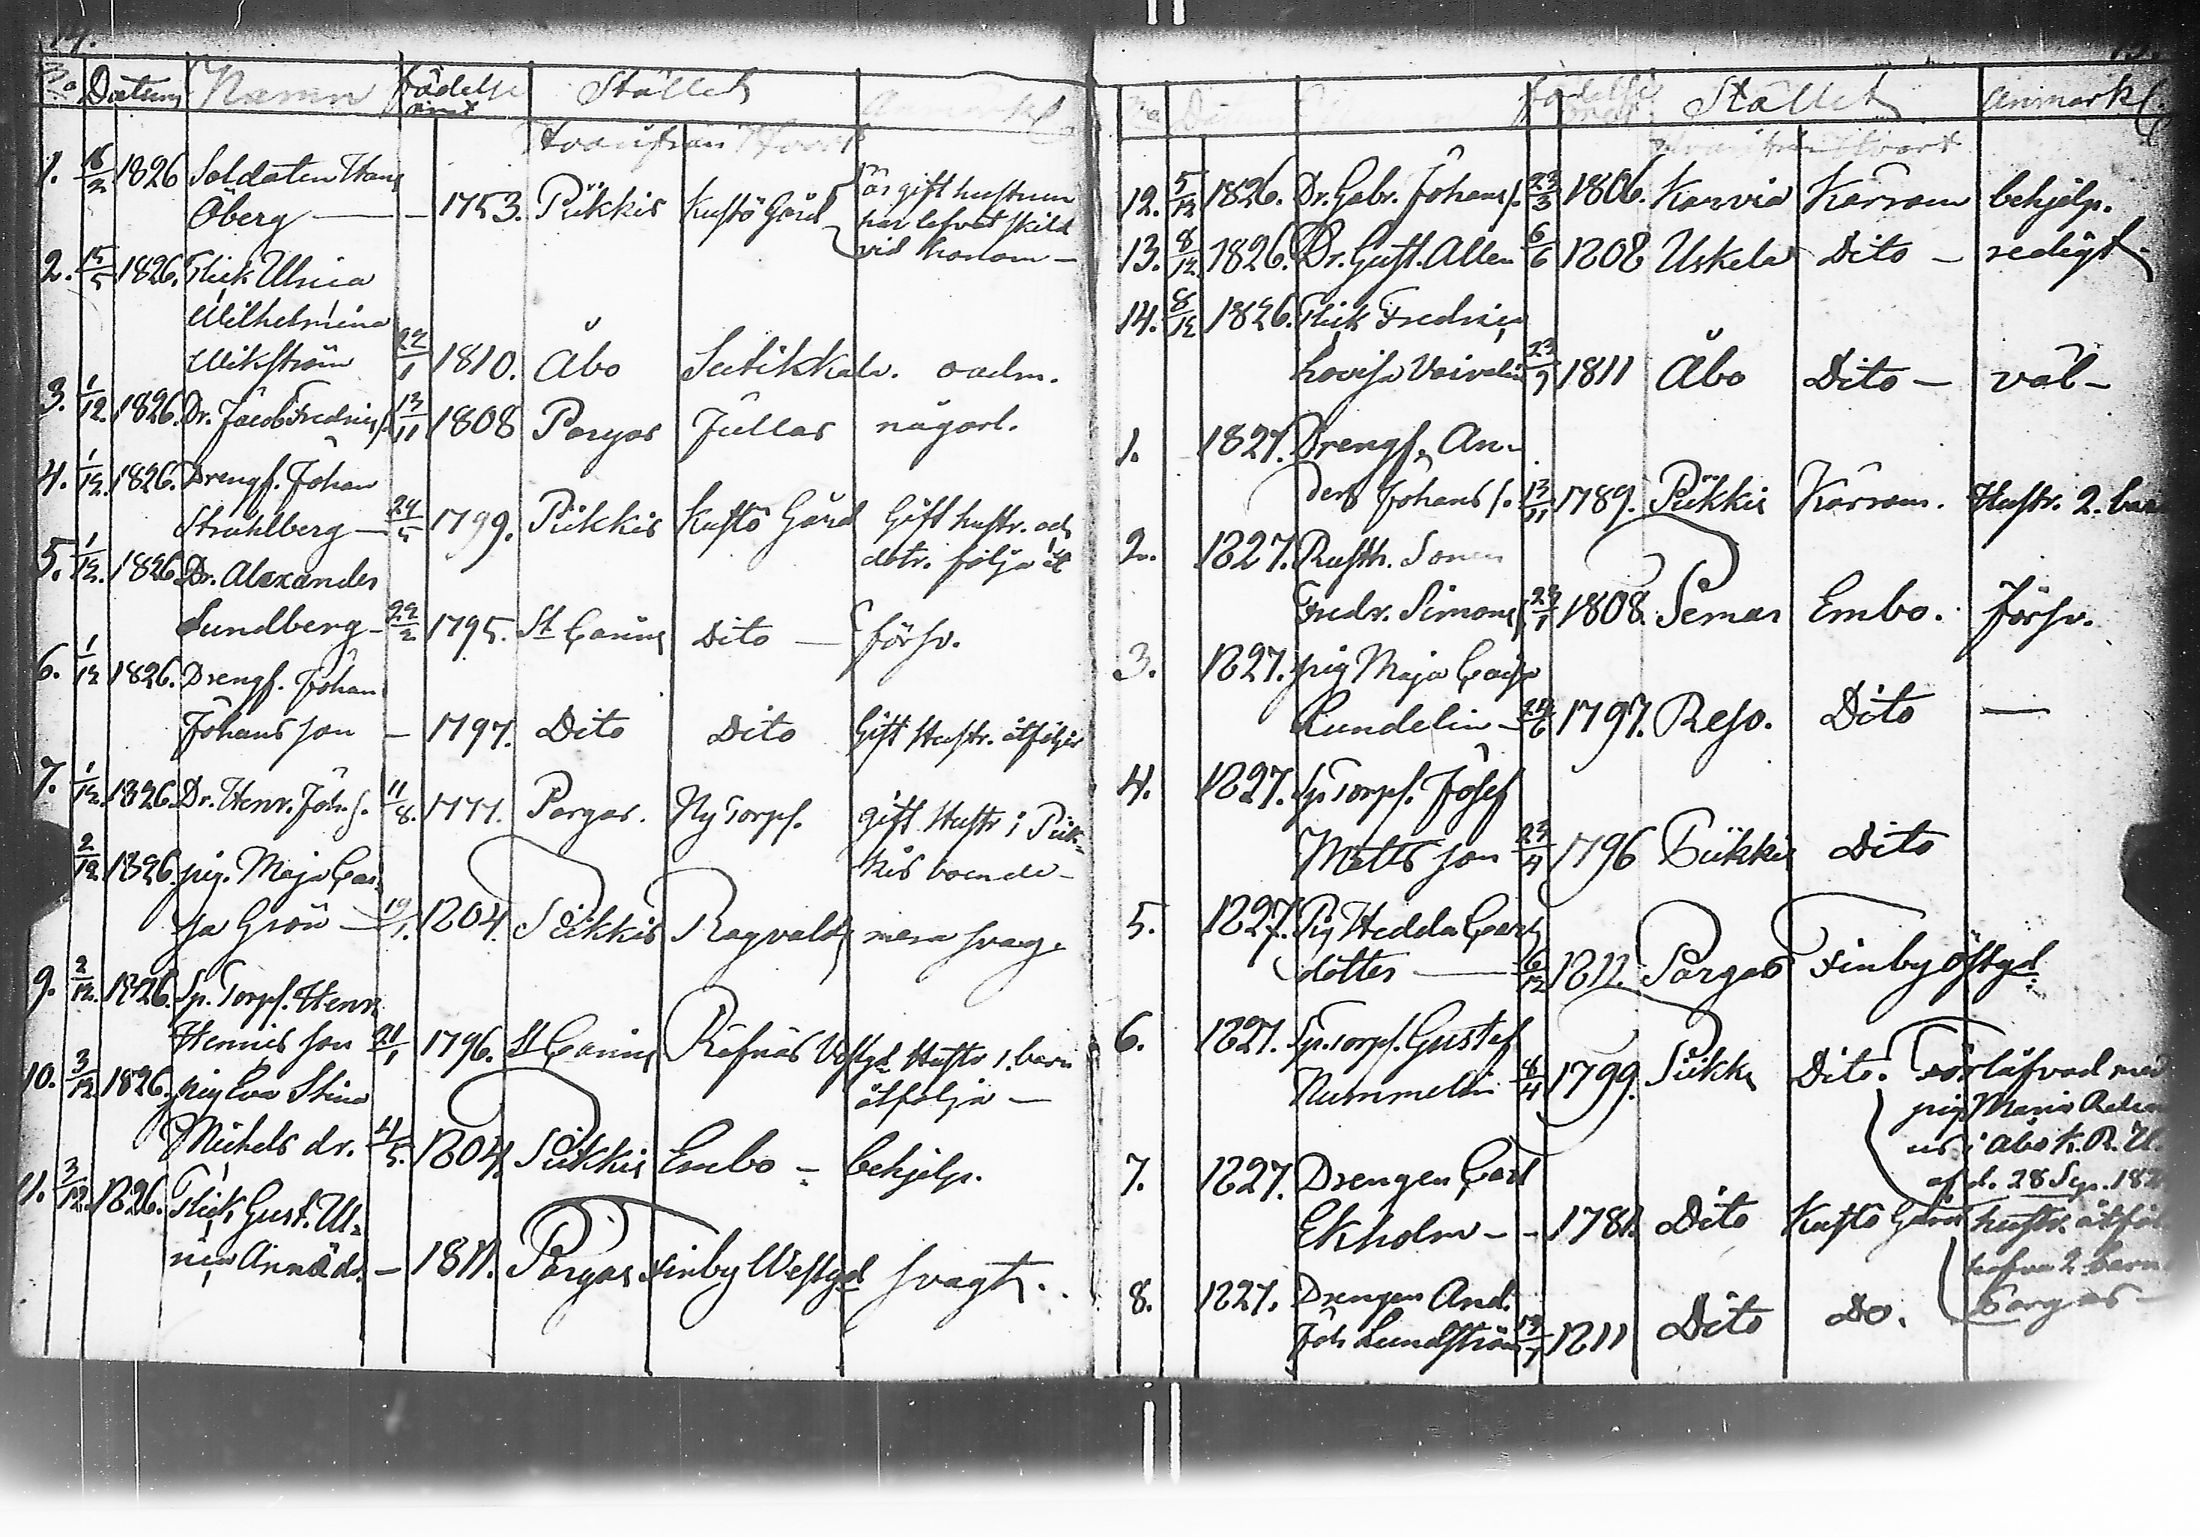 No Datum Namn födelse Stället
Hvarifrån Hvart
1. 16/2 1826 Soldaten Hans
Öberg — 1753. Piikkis Kustö Gård är gift hustrun
har lefvat skild
vid honom —
2. 15/5 1826. Flick Ulrica
Wilhelmina
Wikström 22/1 1810. Åbo Sutikkala. oadm.
3. 1/12. 1826. Dr. Jacob Fredrics. 13/11 1808 Pargas Jullas någorl.
4. 1/12. 1826. Drengs. Johan
Strahlberg — 24/5 1799. Piikkis Kustö Gård Gift hustr. och
dotr. följa åt
5. 1/12. 1826. Dr. Alexander
Sundberg — 22/2 1795. St Carins Dito — försv.
6. 1/12 1826. Drengs. Johan
Johansson — 1797. Dito Dito Gift Hustr. åtföljer
7. 1/12. 1826. Dr. Henr. Joh. s. 11/8. 1777. Pargas. Ny Torps. gift Hustr i Piik-
kis boende —
2/12. 1826. pig. Maja Cai-
sa Grön — 19/1. 1804. Piikkis Ragvalds mera svag.
9. 2/12. 1826. Sp. Torps. Henr.
Henricsson 21/1 1796. St Carins Räfnäs Vestgd Hustr 1. barn
åtfölja —
10. 3/12. 1826. pig Eva Stina
Michels dr. 21/5. 1804. Piikkis Embo — behjelp.
11. 3/12. 1826. Flick Gust. Ul-
rica Annädr. — 1811. Pargas Finby Westgd svagt.
födelse Stället Anmärk.
Hvart
12. 5/12 1826. Dr. Gabr. Johans s. 23/3 1806. Karvia Kärsam behjelp.
13. 8/12 1826. Dr. Gust. Allen 6/6 1808 Uskela Dito — redigt
14. 8/12 1826. Flick Fredrica
Lovisa 23/9 1811 Åbo Dito — väl —
1. 1827. Drengs. An-
ders Johans s. 13/11 1789. Piikkis Kärsam. Hustr. 2. barn
2. 1827. Rusth. Sonen
Fredr. Simons s. 1808. Pemar Embo. försv.
3. 1827. pig Maja Caisa
Rundelin — 24/6 1797. Reso. Dito —
4. 1827. Sp. Torps. Josef
Mattsson 23/4 1796 Piikkis Dito
5. 1827. Pig Hedda Carls
dotter — 6/12 1812. Pargas Finby Östgd
6. 1827. Sp. Torps. Gustaf
Nummelin 8/4 1799. Piikk. Dito. Förlåfvad med
pig Maria
i Åbo K. R. U.
af d. 28 Sep. 182
7. 1827. Drengen Carl
Ekholm — 1781. Dito Kustö Gård hustr. åtföl
hafva 2 barn
Pargas —
8. 1827. Drengen And.
Joh Lundström 1811 Dito Do.